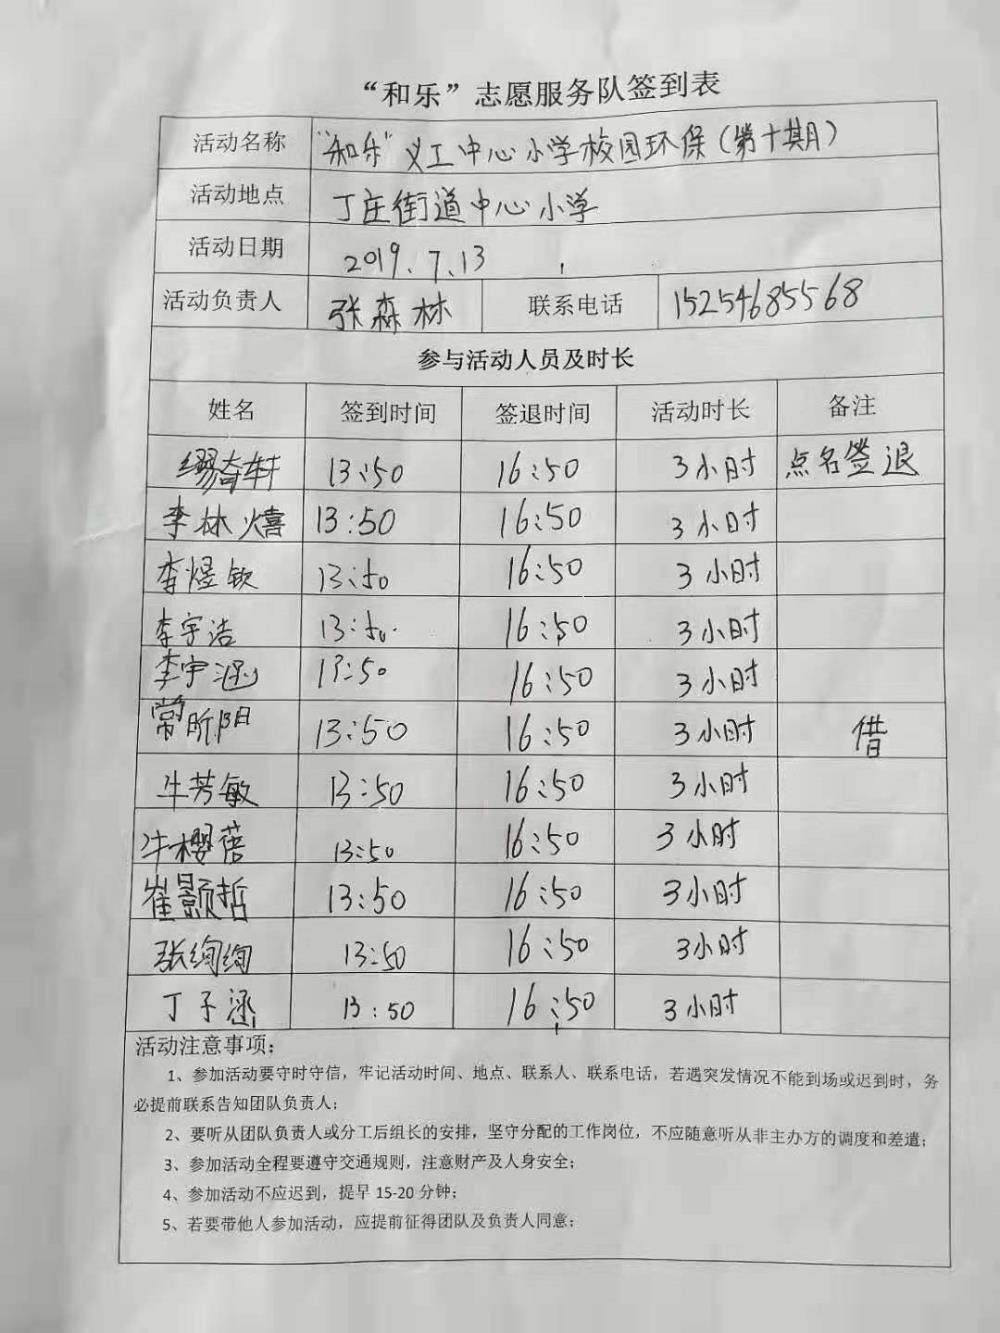 “和乐”志愿服务队签到表
活动名称 “和乐”义工中心小学校园环保(第十期)
活动地点 丁庄街道中心小学
活动日期 2019.7.13
活动负责人 张森林 联系电话 15254685568
参与活动人员及时长
姓名 签到时间 签退时间 活动时长 备注
缪奇轩 13:50 16:50 3小时 点名签退
李林熺 13:50 16:50 3小时
李煜钦 13:50 16:50 3小时
李宇浩 13:50 16:50 3小时
李宇涵 13:50 16:50 3小时
常昕阳 13:50 16:50 3小时 借
牛芳敏 13:50 16:50 3小时
牛樱蓓 13:50 16:50 3小时
崔颢哲 13:50 16:50 3小时
张绚绚 13:50 16:50 3小时
丁子涵 13:50 16:50 3小时
活动注意事项:
1、参加活动要守时守信,牢记活动时间、地点、联系人、联系电话,若遇突发情况不能到场或迟到时,务
必提前联系告知团队负责人;
2、要听从团队负责人或分工后组长的安排,坚守分配的工作岗位,不应随意听从非主办方的调度和差遣;
3、参加活动全程要遵守交通规则,注意财产及人身安全;
4、参加活动不应迟到,提早 15-20 分钟;
5、若要带他人参加活动,应提前征得团队及负责人同意;